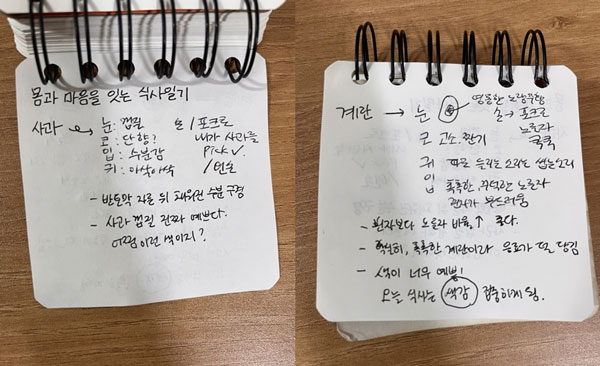 몸과 마음을 잇는 식사일기
사과 → 눈: 껍질
코: 단향?
입: 수분감
귀: 아삭아삭
손 / 포크로
내가 사과를
pick ✓.
/ 먼손
- 반토막 자른 뒤 채워진 수분 구경
- 사과 껍질 진짜 예쁘다.
어쩜 이런 색이지?
계란 → 눈
영롱한 노랑
손 → 포크로
노른자
쿡쿡
코 고소, 짠기
귀 따로 들리는 소리는 씹는소리
입 촉촉한, 꾸덕한 노른자
흰자가 부드러움
- 흰자보다 노른자 비율↑ 좋다.
- 확실히, 촉촉한 계란이라 음료가 덜 당김
- 색이 너무 예쁨!
오늘 식사는 색감 집중하게 됨.